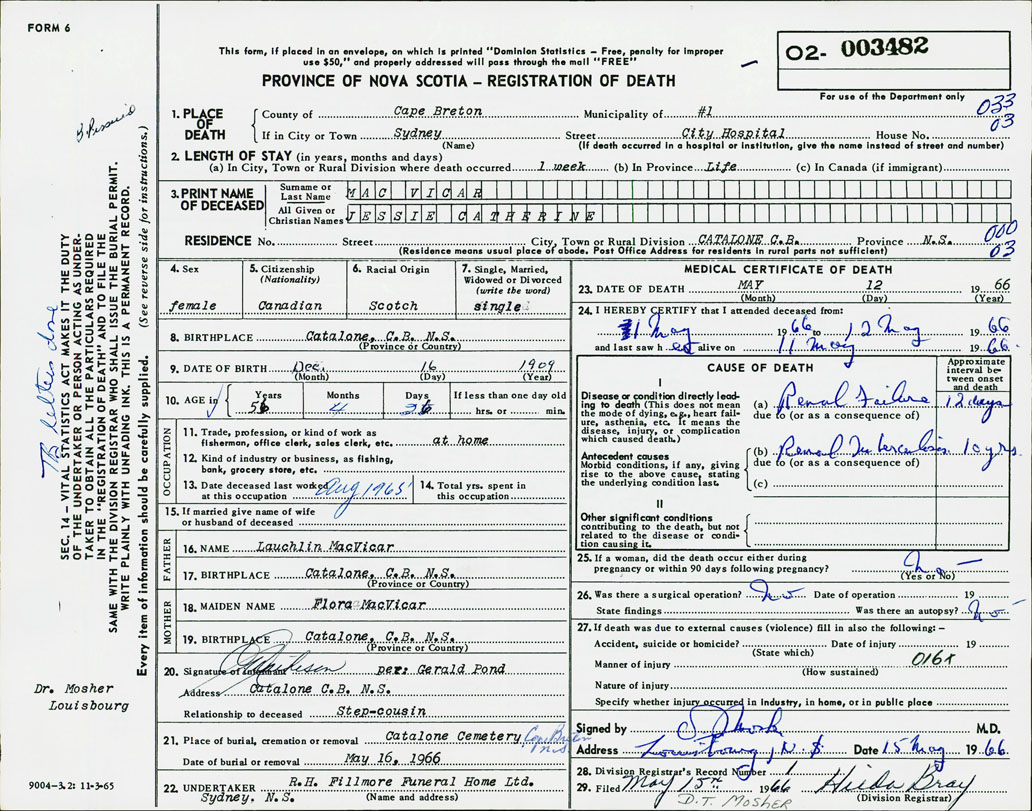 FORM 6
This form, if placed in an envelope, on which is printed "Dominion Statistics – Free, penalty for improper
use $50," and properly addressed will pass through the mail "FREE"
PROVINCE OF NOVA SCOTIA – REGISTRATION OF DEATH
02- 003482
For use of the Department only
033
03
1. PLACE OF DEATH
County of Cape Breton Municipality of #1
If in City or Town Sydney Street City Hospital House No.
(Name) (If death occurred in a hospital or institution, give the name instead of street and number)
2. LENGTH OF STAY (in years, months and days)
(a) In City, Town or Rural Division where death occurred 1 week (b) In Province Life (c) In Canada (if immigrant)
3. PRINT NAME OF DECEASED
Surname or Last Name MAC VICAR
All Given or Christian Names JESSIE CATHERINE
RESIDENCE No. Street City, Town or Rural Division CATALONE C.B. Province N.S.
(Residence means usual place of abode. Post Office Address for residents in rural parts not sufficient)
000
03
4. Sex
female
5. Citizenship
(Nationality)
Canadian
6. Racial Origin
Scotch
7. Single, Married,
Widowed or Divorced
(write the word)
single
8. BIRTHPLACE Catalone, C.B. N.S.
(Province or Country)
9. DATE OF BIRTH Dec. 16 1909
(Month) (Day) (Year)
10. AGE in Years 56 Months 4 Days 26 If less than one day old
hrs. or min.
OCCUPATION
11. Trade, profession, or kind of work as
fisherman, office clerk, sales clerk, etc. at home
12. Kind of industry or business, as fishing,
bank, grocery store, etc.
13. Date deceased last worked
at this occupation Aug 1965
14. Total yrs. spent in
this occupation
15. If married give name of wife
or husband of deceased
FATHER
16. NAME Lauchlin MacVicar
17. BIRTHPLACE Catalone, C.B. N.S.
(Province or Country)
MOTHER
18. MAIDEN NAME Flora MacVicar
19. BIRTHPLACE Catalone, C.B. N.S.
(Province or Country)
20. Signature of informant per: Gerald Pond
Address Catalone C.B. N.S.
Relationship to deceased Step-cousin
21. Place of burial, cremation or removal Catalone Cemetery
Date of burial or removal May 16, 1966
22. UNDERTAKER R.H. Fillmore Funeral Home Ltd.
Sydney, N.S. (Name and address)
MEDICAL CERTIFICATE OF DEATH
23. DATE OF DEATH MAY 12 1966
(Month) (Day) (Year)
24. I HEREBY CERTIFY that I attended deceased from:
1 May 1966 to 12 May 1966
and last saw her alive on 11 May 1966
CAUSE OF DEATH
Approximate
interval between onset
and death
I
Disease or condition directly leading to death (This does not
mean the mode of dying, e.g., heart failure, asthenia, etc. It means the
disease, injury, or complication
which caused death.)
(a) Renal Failure 12 days
due to (or as a consequence of)
Antecedent causes
Morbid conditions, if any, giving
rise to the above cause, stating
the underlying condition last.
(b) Renal Tuberculosis 10 yrs.
due to (or as a consequence of)
(c)
II
Other significant conditions
contributing to the death, but not
related to the disease or condition causing it.
25. If a woman, did the death occur either during
pregnancy or within 90 days following pregnancy? no
(Yes or No)
26. Was there a surgical operation? no Date of operation 19
State findings Was there an autopsy? no
27. If death was due to external causes (violence) fill in also the following: –
Accident, suicide or homicide? Date of injury 19
(State which)
Manner of injury
(How sustained)
Nature of injury
Specify whether injury occurred in Industry, in home, or in public place
Signed by M.D.
Address Louisbourg, N.S. Date 15 May 1966
28. Division Registrar's Record Number 1
29. Filed May 15th 1966 Hilda Bray
(Division Registrar)
D.T. MOSHER
SEC. 14 – VITAL STATISTICS ACT MAKES IT THE DUTY
OF THE UNDERTAKER OR PERSON ACTING AS UNDERTAKER TO OBTAIN ALL THE PARTICULARS REQUIRED
IN THE "REGISTRATION OF DEATH" AND TO FILE THE
SAME WITH THE DIVISION REGISTRAR WHO SHALL ISSUE THE BURIAL PERMIT.
WRITE PLAINLY WITH UNFADING INK. THIS IS A PERMANENT RECORD.
Every item of information should be carefully supplied. (See reverse side for instructions.)
Dr. Mosher
Louisbourg
9004-3.2: 11-3-65